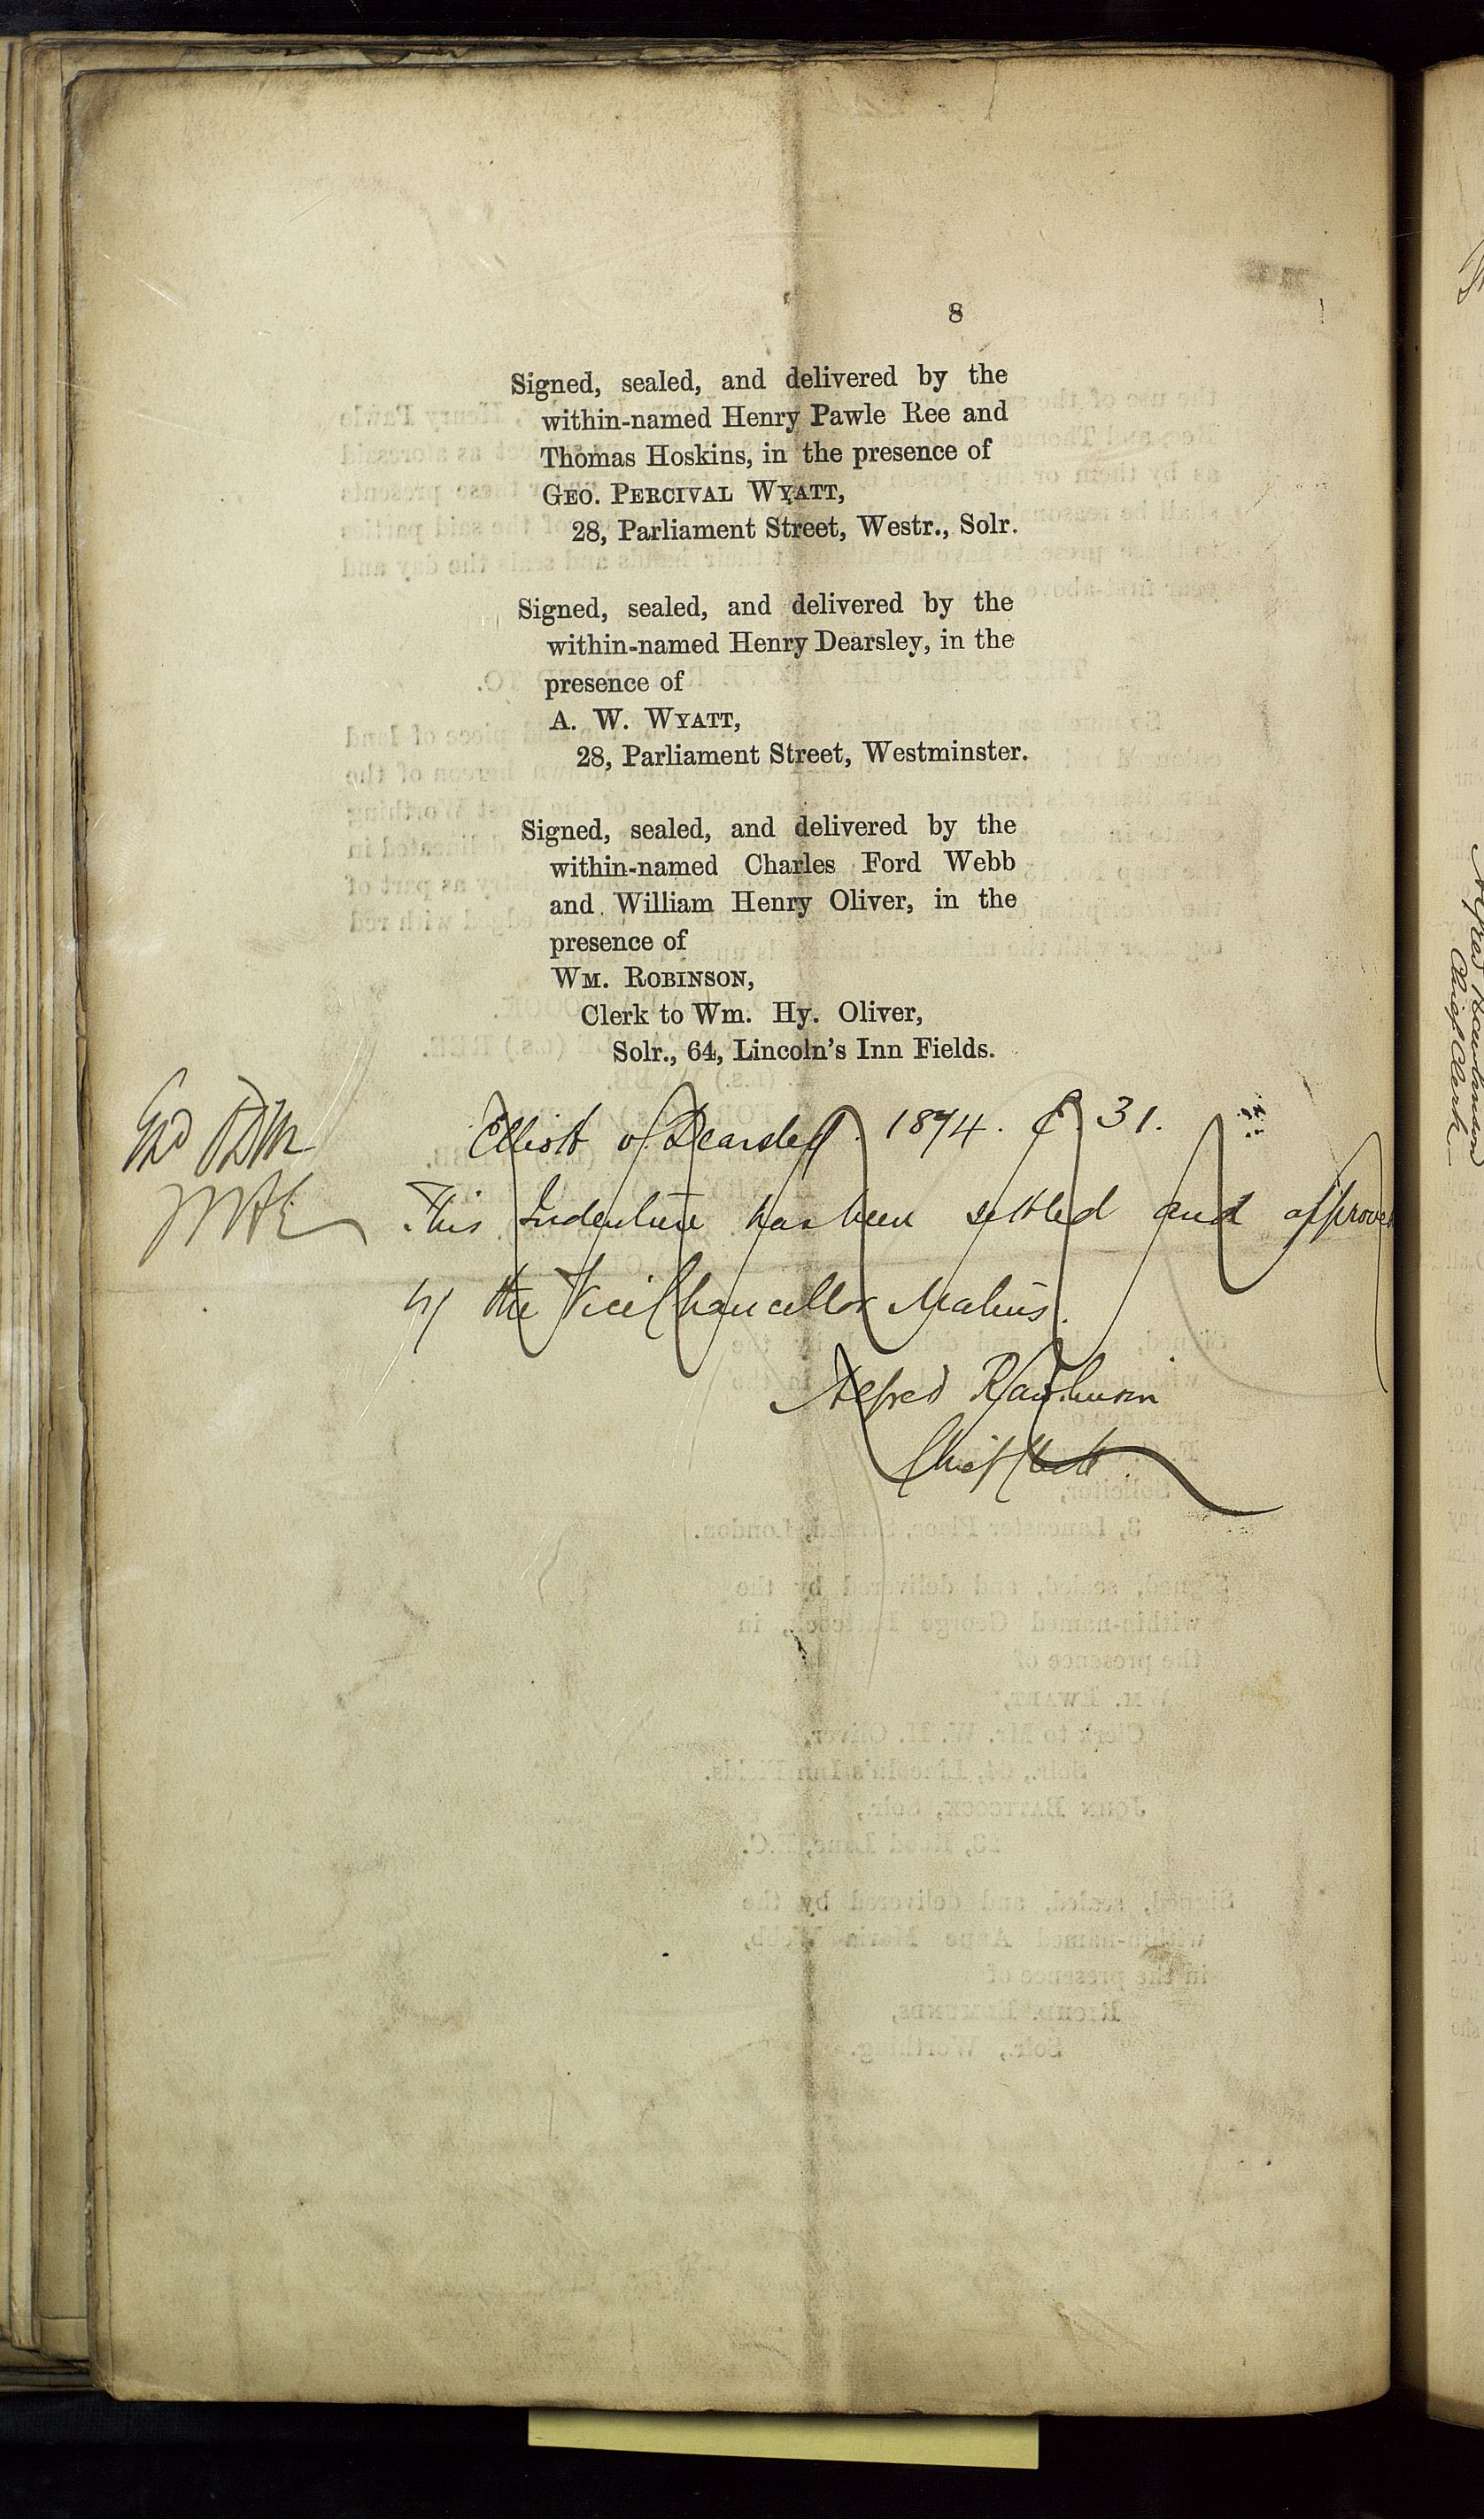 8
Signed, sealed, and delivered by the
within-named Henry Pawle Ree and
Thomas Hoskins, in the presence of
GEO. PERCIVAL WYATT,
28, Parliament Street, Westr., Solr.
Signed, sealed, and delivered by the
within-named Henry Dearsley, in the
presence of
A. W. WYATT,
28, Parliament Street, Westminster.
Signed, sealed, and delivered by the
within-named Charles Ford Webb
and William Henry Oliver, in the
presence of
WM. ROBINSON,
Clerk to Wm. Hy. Oliver,
Solr., 64, Lincoln's Inn Fields.
Elliott v. Dearsley. 1874. E. 31.
This Indenture has been settled and approved
by the Vice Chancellor Malins.
Alfred Rawlinson
Chief Clerk